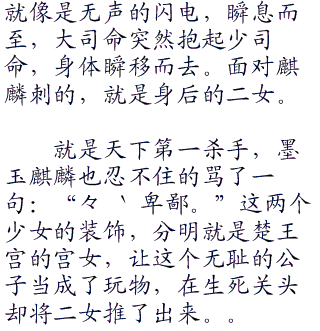 就像是无声的闪电，瞬息而
至，大司命突然抱起少司
命，身体瞬移而去。面对麒
麟刺的，就是身后的二女。
就是天下第一杀手，墨
玉麒麟也忍不住的骂了一
句：“々丶卑鄙。”这两个
少女的装饰，分明就是楚王
宫的宫女，让这个无耻的公
子当成了玩物，在生死关头
却将二女推了出来。。